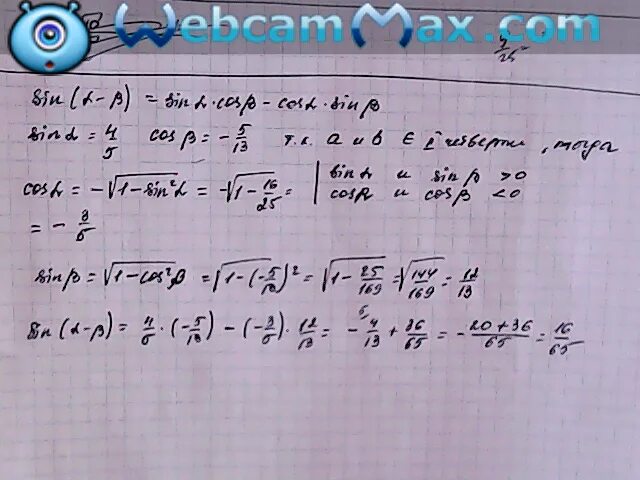 WebcamMax.com
4/25
sin(α-β) = sinα·cosβ - cosα·sinβ
sinα = 4/5 cosβ = -5/13 т.к. a и b ∈ II четверти, тогда
cosα = -√(1-sin²α) = -√(1-16/25) = | sinα и sinβ >0
= -3/5 | cosα и cosβ <0
sinβ = √(1-cos²β) = √(1-(-5/13)²) = √(1-25/169) = √(144/169) = 12/13
sin(α-β) = 4/5·(-5/13) - (-3/5)·12/13 = -4/13 + 36/65 = -20+36/65 = 16/65